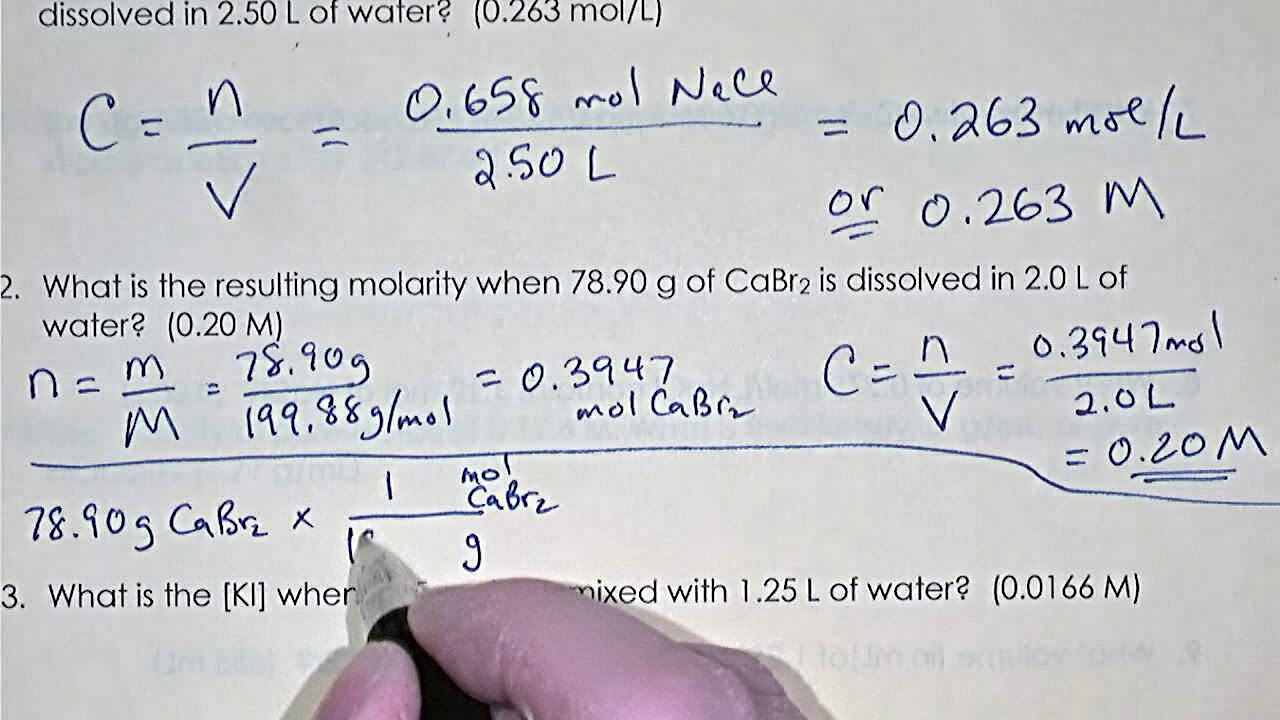 dissolved in 2.50 L of water? (0.263 mol/L)
C = n/V = 0.658 mol NaCl / 2.50 L = 0.263 mol/L
or 0.263 M
2. What is the resulting molarity when 78.90 g of CaBr₂ is dissolved in 2.0 L of
water? (0.20 M)
n = m/M = 78.90g / 199.88g/mol = 0.3947 mol CaBr₂
C = n/V = 0.3947mol / 2.0L
= 0.20 M
78.90g CaBr₂ × 1 mol CaBr₂ / g
3. What is the [KI] when mixed with 1.25 L of water? (0.0166 M)